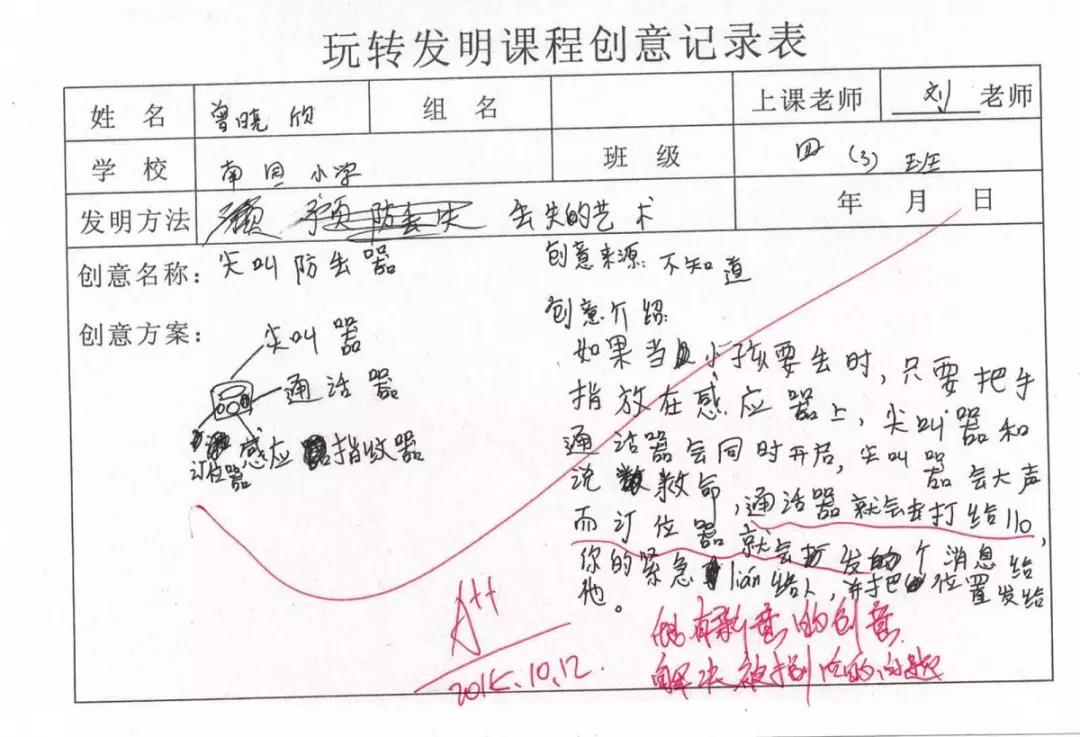 玩转发明课程创意记录表
姓 名 曾晓欣 组 名 上课老师 刘老师
学 校 小学 班 级 四(3)班
发明方法 丢失的艺术 年 月 日
创意名称：尖叫防丢器
创意方案：
尖叫器
通话器
感应指纹器
订位器
创意来源：不知道
创意介绍：
如果当小孩要丢时，只要把手
指放在感应器上，尖叫器和
通话器会同时开启，尖叫器会大声
说救命，通话器就会去打给110，
而订位器就会发个消息给
你的紧急lián络人，并把位置发给
他。
A++
2015.10.12.
很有新意的创意
解决被拐的问题